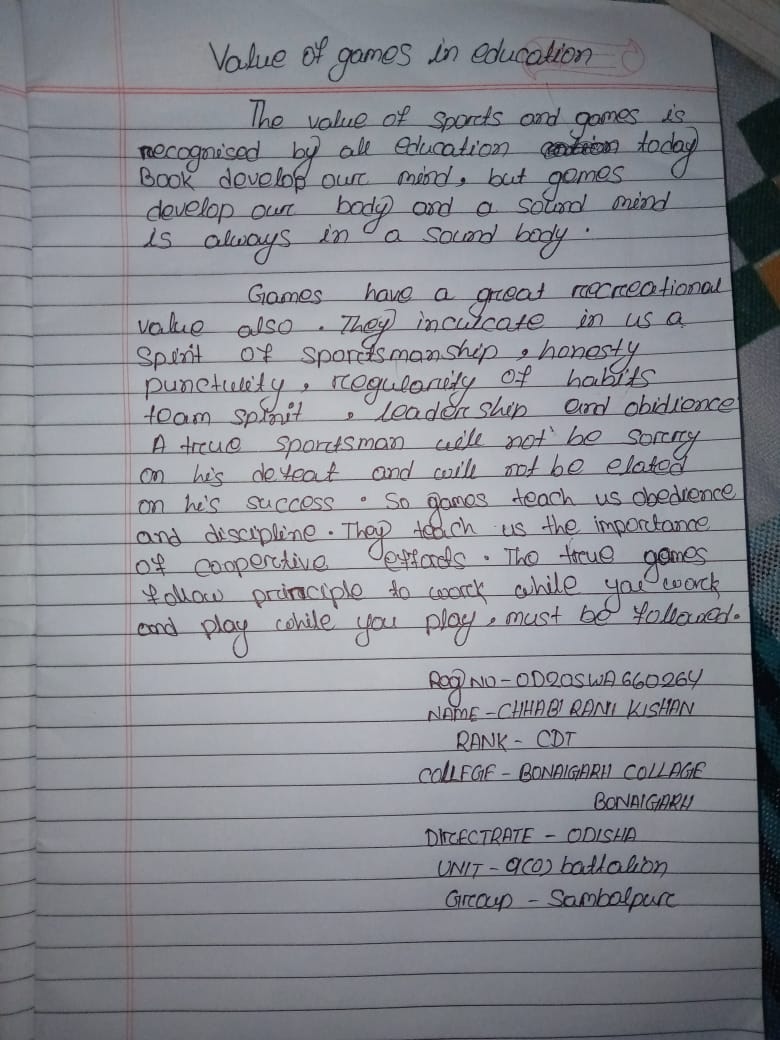 Value of games in education
The value of sports and games is
recognised by all education today
Book develop our mind, but games
develop our body and a sound mind
is always in a sound body.
Games have a great recreational
value also. They inculcate in us a
spirit of sportsmanship, honesty
punctulity, regularity of habits
team spirit, leader ship and obidience
A true sportsman will not be sorry
on he's defeat and will not be elated
on he's success. So games teach us obedience
and discipline. They teach us the importance
of cooperctive efforts. The true games
follow principle to work while you work
and play while you play, must be followed.
Reg NO - OD20SWA660264
NAME - CHHABI RANI KISHAN
RANK - CDT
COLLEGE - BONAIGARH COLLAGE
BONAIGARH
DIRECTRATE - ODISHA
UNIT - 9(O) battalion
Group - Sambalpur